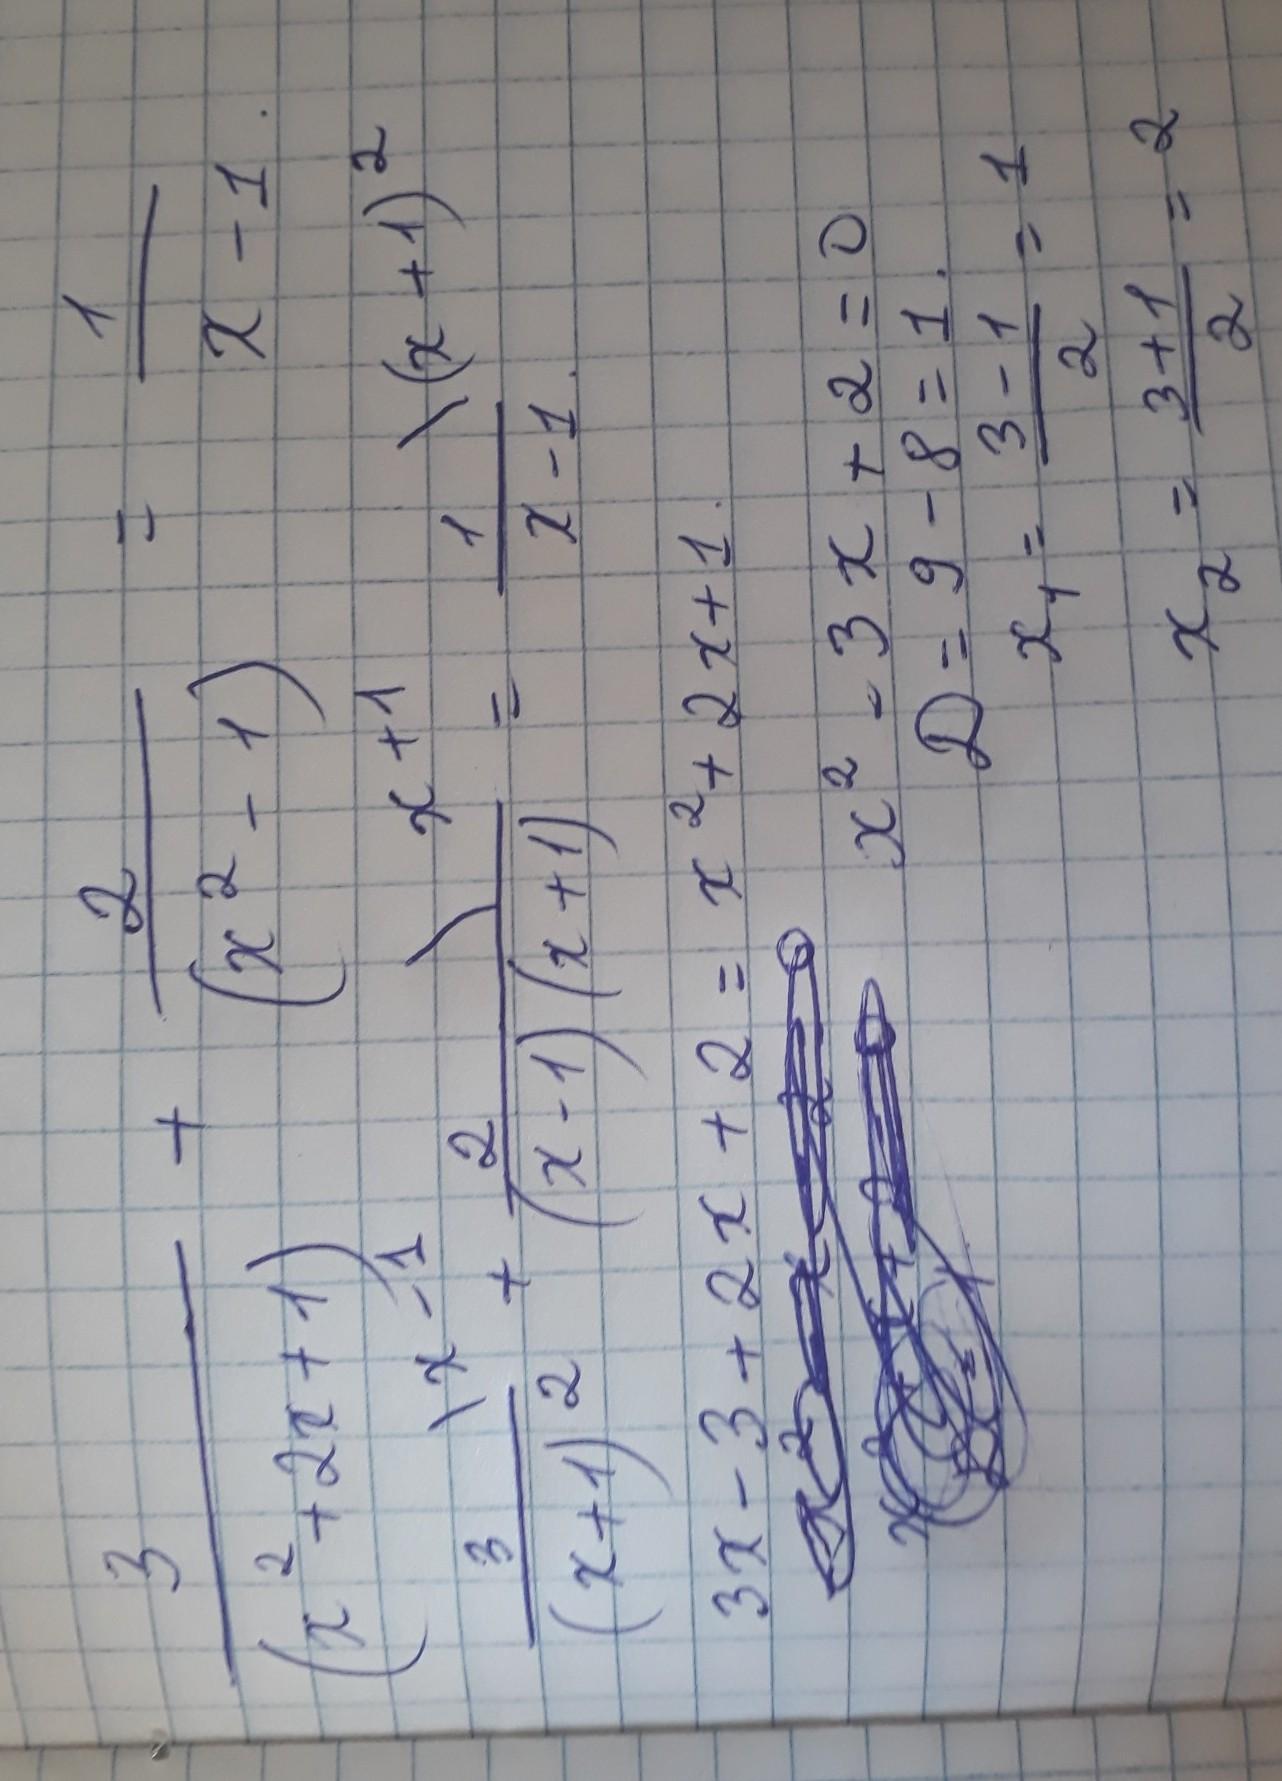 3/(x² + 2x + 1) + 2/(x² - 1) = 1/(x - 1).
3/(x+1)² \x - 1 + 2/((x - 1)(x + 1)) \x + 1 = 1/(x - 1). \(x + 1)²
3x - 3 + 2x + 2 = x² + 2x + 1.
x² - 3x + 2 = 0
D = 9 - 8 = 1.
x₁ = (3 - 1)/2 = 1
x₂ = (3 + 1)/2 = 2